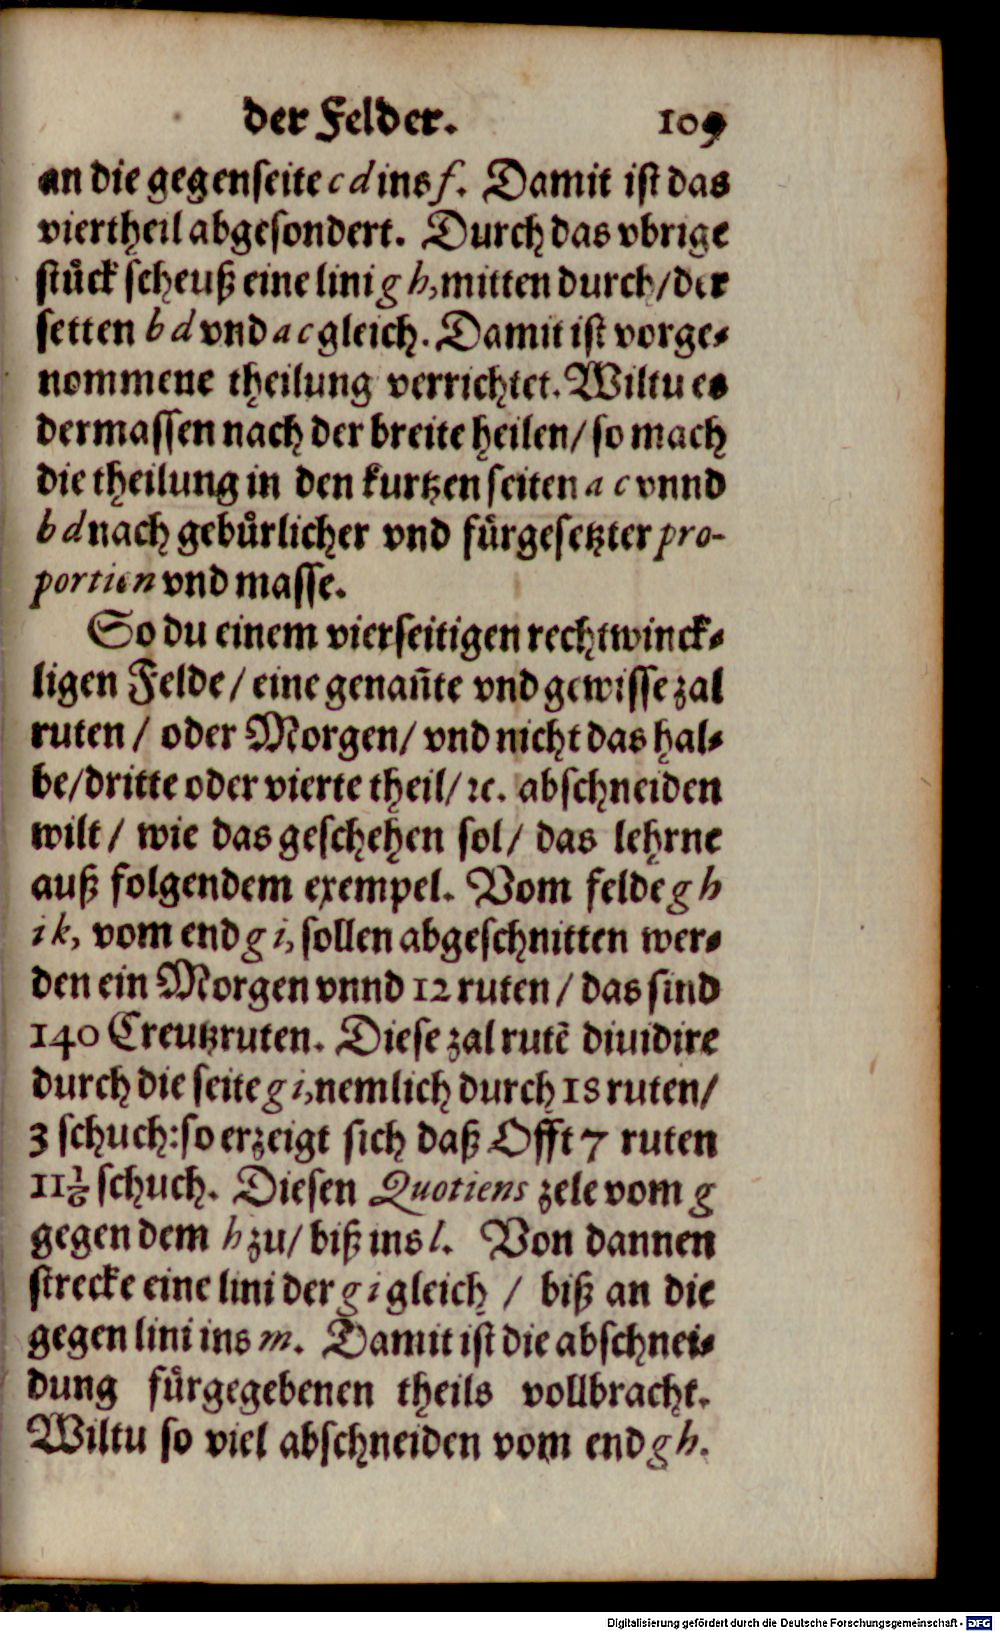 der Felder. 109
an die gegenseite c d ins f. Damit ist das
viertheil abgesondert. Durch das vbrige
stuͤck scheuß eine lini g h, mitten durch/ der
setten b d vnd a c gleich. Damit ist vorge⸗
nommene theilung verrichtet. Wiltu es
dermassen nach der breite heilen/ so mach
die theilung in den kurtzen seiten a c vnnd
b d nach gebuͤrlicher vnd fuͤrgesetzter pro-
portien vnd masse.
So du einem vierseitigen rechtwinck⸗
ligen Felde/ eine genañte vnd gewisse zal
ruten/ oder Morgen/ vnd nicht das hal⸗
be/ dritte oder vierte theil/ ꝛc. abschneiden
wilt/ wie das geschehen sol/ das lehrne
auß folgendem exempel. Vom felde g h
i k, vom end g i, sollen abgeschnitten wer⸗
den ein Morgen vnnd 12 ruten/ das sind
140 Creutzruten. Diese zal rutẽ diuidire
durch die seite g i, nemlich durch 18 ruten/
3 schuch: so erzeigt sich daß Offt 7 ruten
11 1/6 schuch. Diesen Quotiens zele vom g
gegen dem h zu/ biß ins l. Von dannen
strecke eine lini der g i gleich / biß an die
gegen lini ins m. Damit ist die abschnei⸗
dung fuͤrgegebenen theils vollbracht.
Wiltu so viel abschneiden vom end g h.
Digitalisierung gefördert durch die Deutsche Forschungsgemeinschaft - DFG